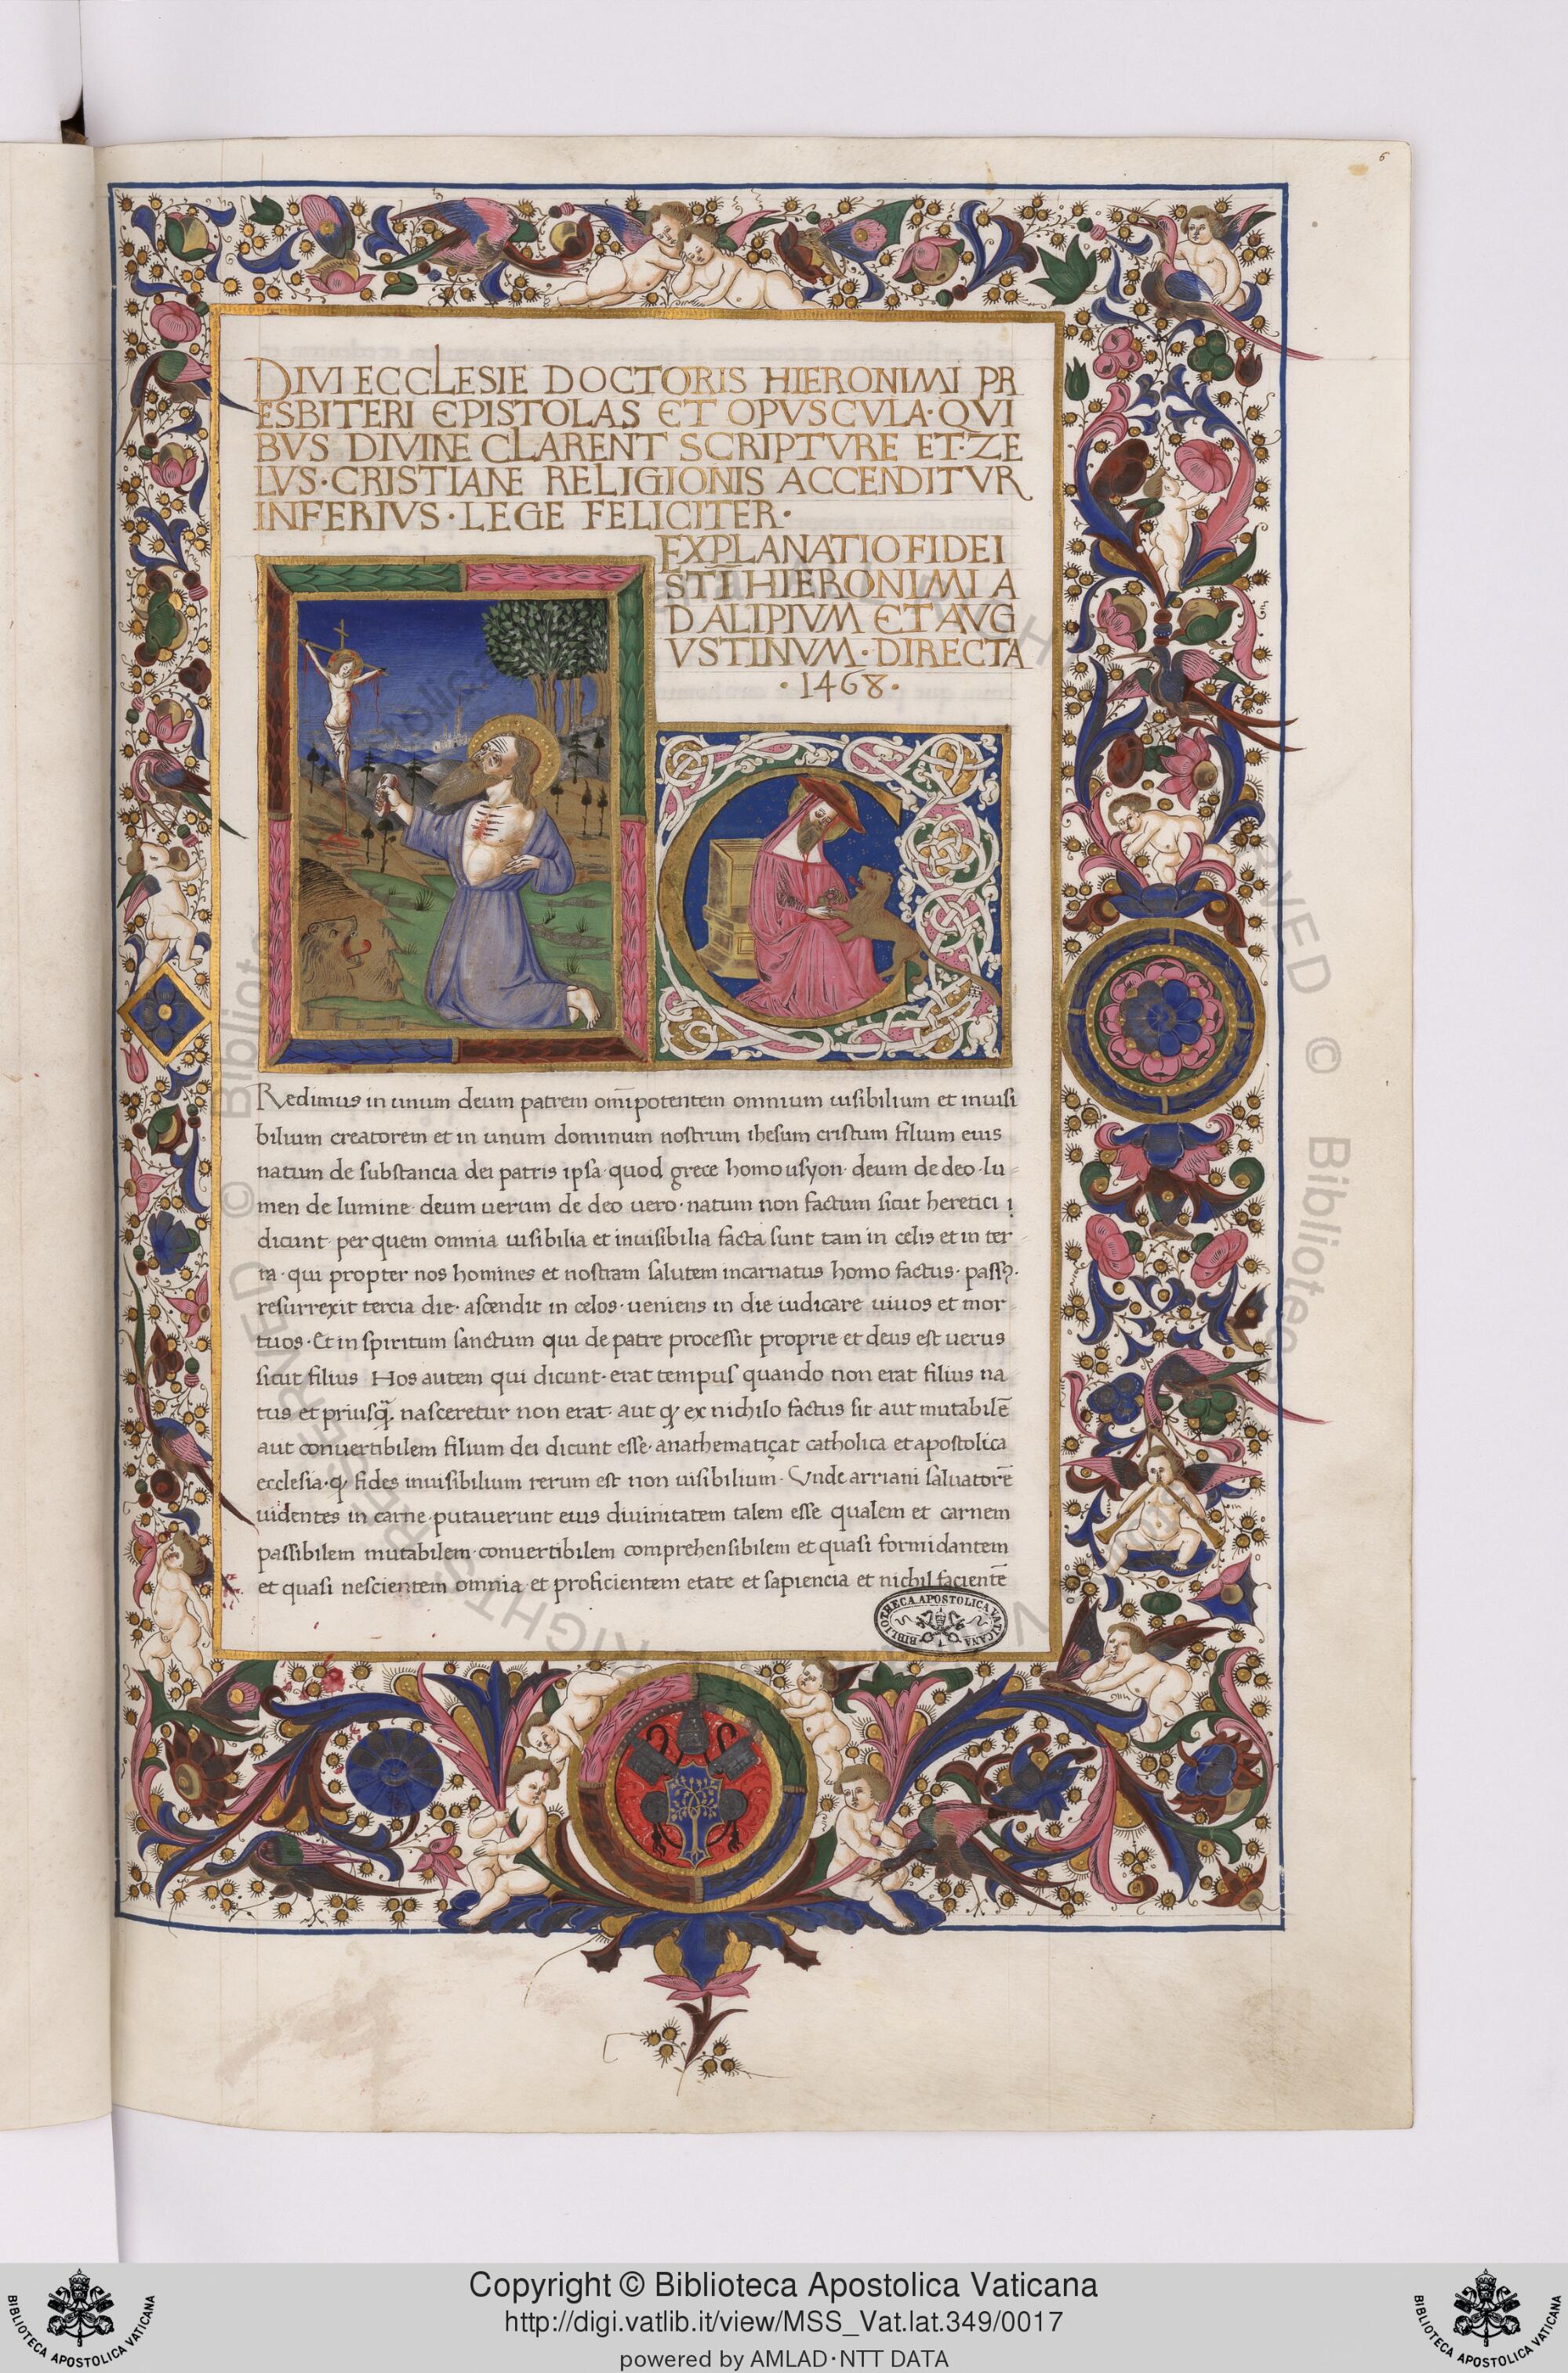 6
DIVI ECCLESIE DOCTORIS HIERONIMI PR
ESBITERI EPISTOLAS ET OPVSCVLA · QVI
BVS DIVINE CLARENT SCRIPTVRE ET · ZE
LVS · CRISTIANE RELIGIONIS ACCENDITVR
INFERIVS · LEGE FELICITER ·
EXPLANATIO FIDEI
STI HIERONIMI A
D ALIPIVM ET AVG
VSTINVM · DIRECTA
· 1468 ·
C
Redimus in unum deum patrem om̄ipotentem omnium uisibilium et inuisi
bilium creatorem et in unum dominum nostrum ihesum cristum filium eius
natum de substancia dei patris ipsa · quod grece homousyon · deum de deo · lu-
men de lumine · deum uerum de deo uero · natum non factum sicut heretici
dicunt · per quem omnia uisibilia et inuisibilia facta sunt tam in celis et in ter-
ra · qui propter nos homines et nostram salutem incarnatus homo factus · passꝰ ·
resurrexit tercia die · ascendit in celos · ueniens in die iudicare uiuos et mor-
tuos · Et in spiritum sanctum qui de patre processit proprie et deus est uerus
sicut filius Hos autem qui dicunt · erat tempus quando non erat filius na
tus et priusq̃ nasceretur non erat · aut ꝙ ex nichilo factus sit aut mutabilē
aut conuertibilem filium dei dicunt esse · anathematiçat catholica et apostolica
ecclesia · ꝙ fides inuisibilium rerum est non uisibilium · Vnde arriani saluatorē
uidentes in carne · putauerunt eius diuinitatem talem esse qualem et carnem
passibilem mutabilem · conuertibilem comprehensibilem et quasi formidantem
et quasi nescientem omnia · et proficientem etate et sapiencia et nichil facientē
BIBLIOTHECA APOSTOLICA VATICANA
Copyright © Biblioteca Apostolica Vaticana
http://digi.vatlib.it/view/MSS_Vat.lat.349/0017
powered by AMLAD · NTT DATA
BIBLIOTECA APOSTOLICA VATICANA
BIBLIOTECA APOSTOLICA VATICANA